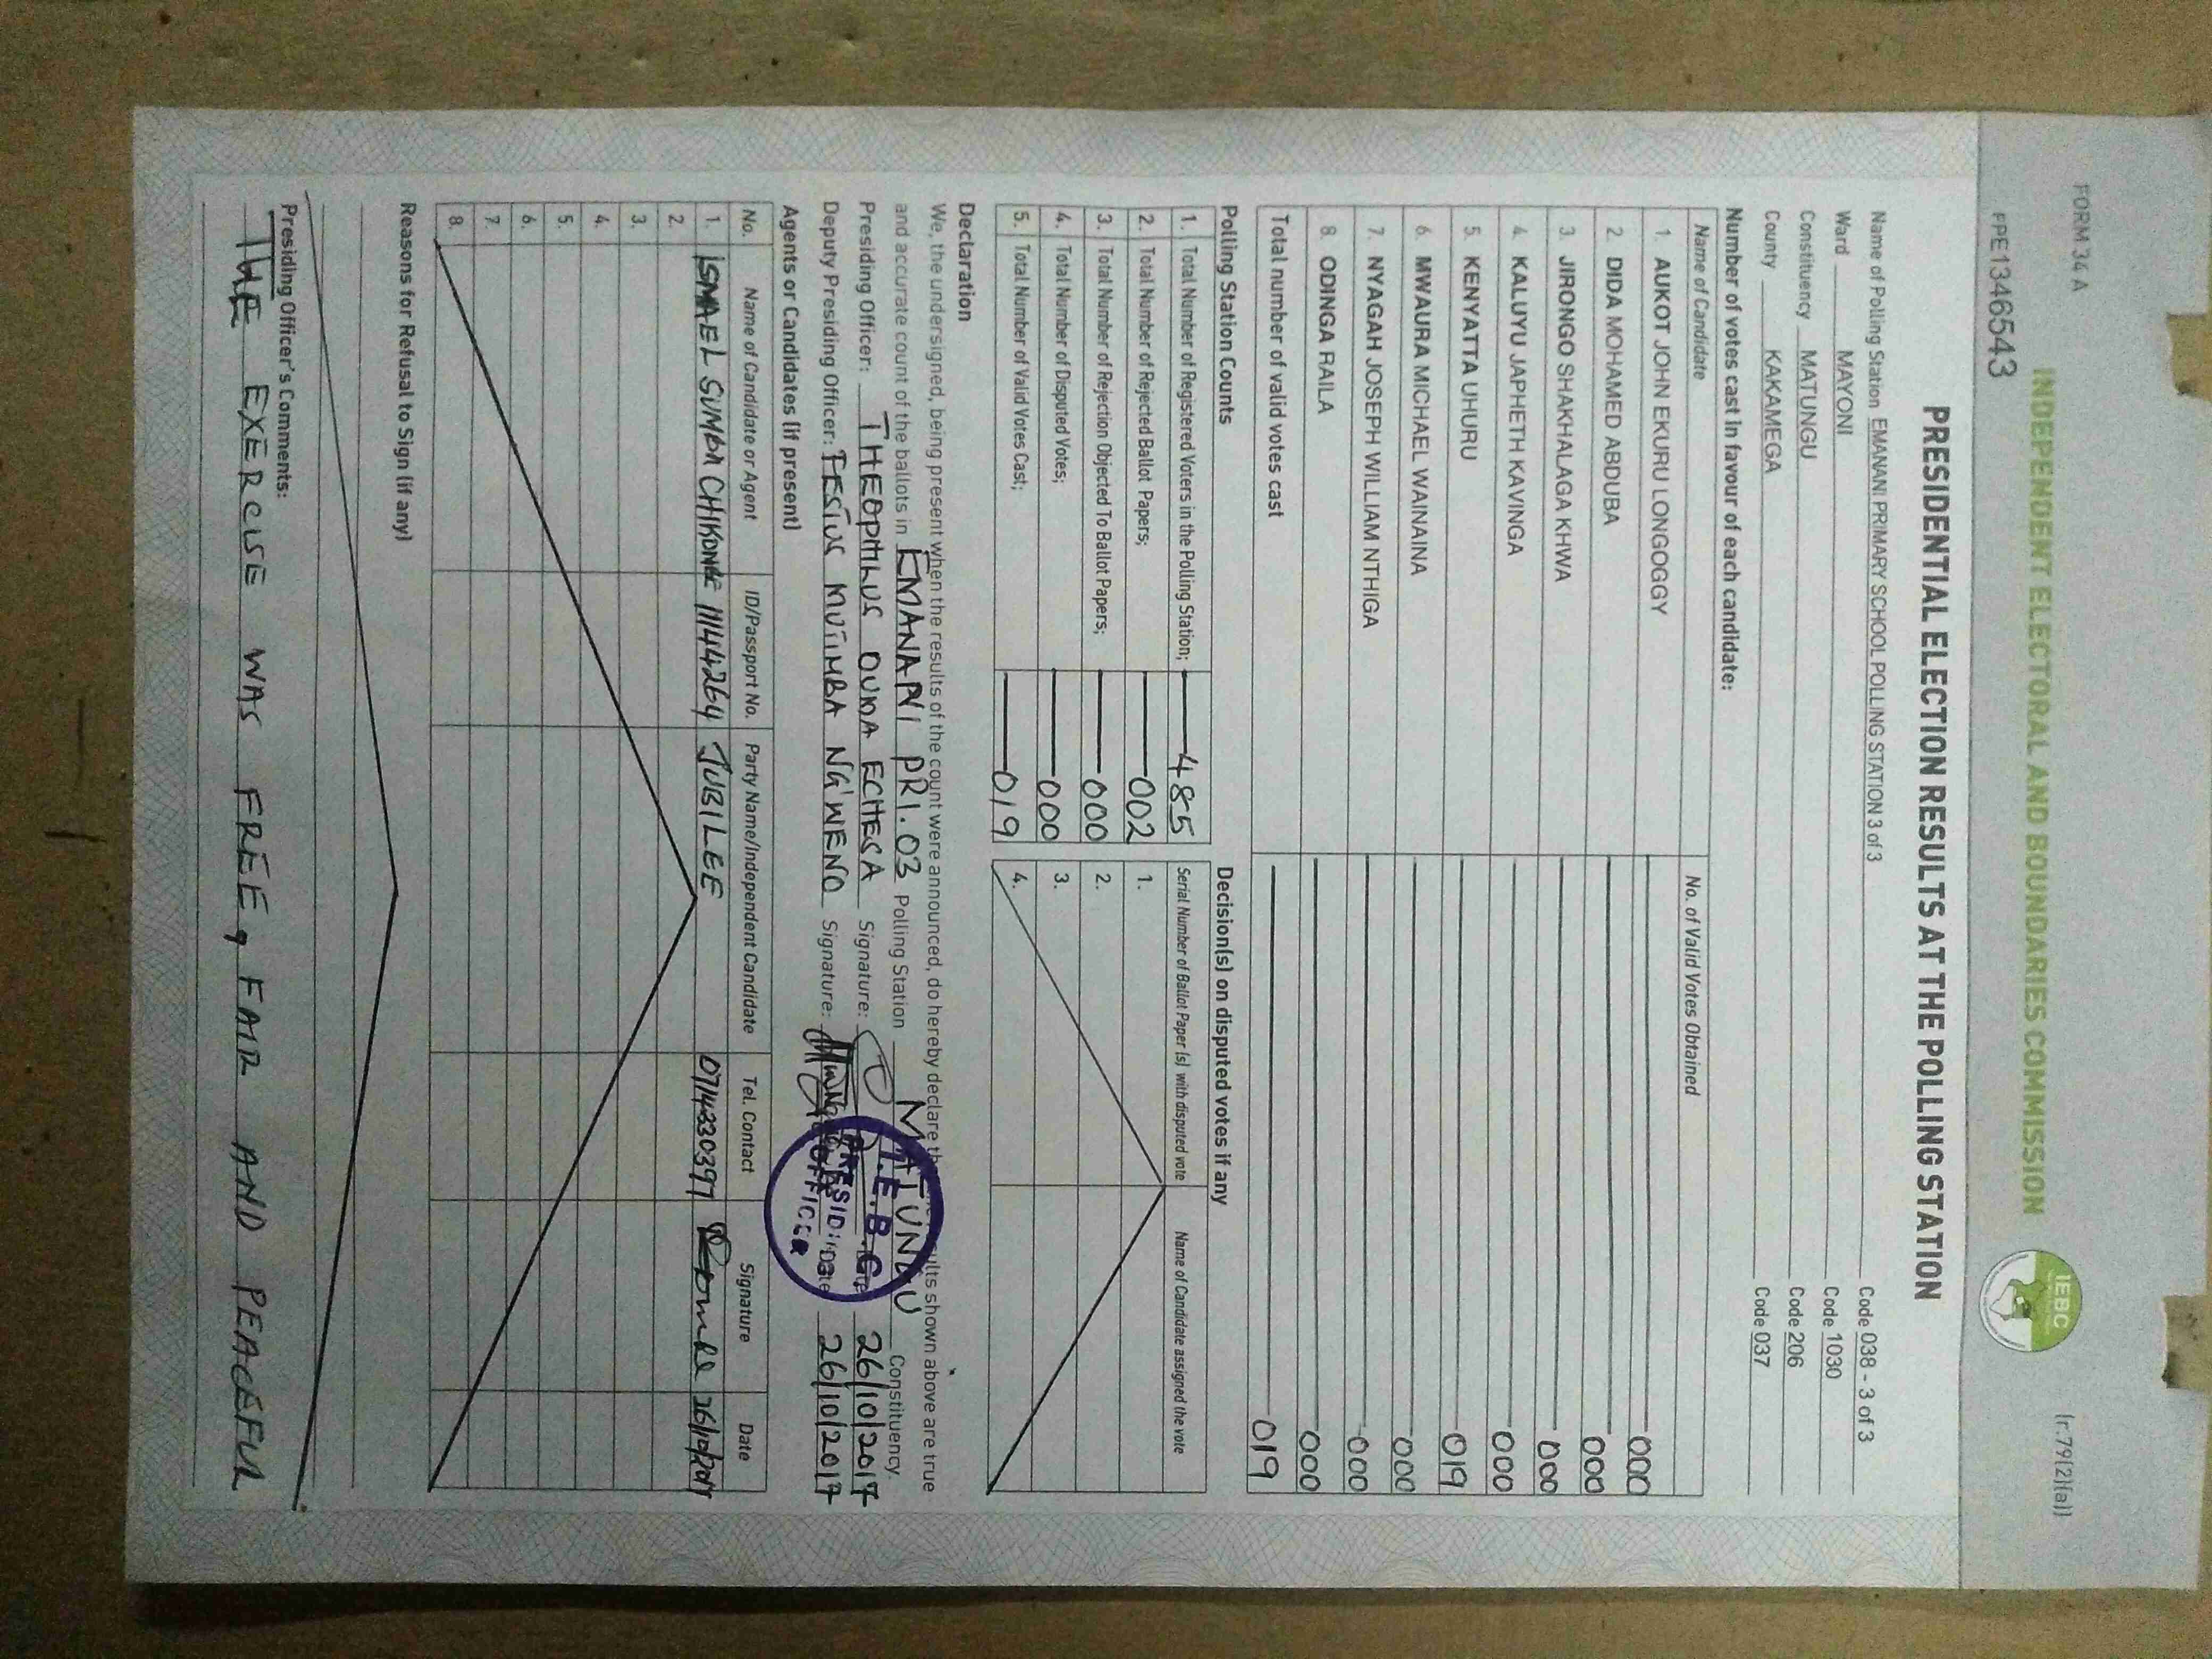 FORM 34 A
(r.79(2)(a))
INDEPENDENT ELECTORAL AND BOUNDARIES COMMISSION
IEBC
FPE1346543
PRESIDENTIAL ELECTION RESULTS AT THE POLLING STATION
Name of Polling Station EMANANI PRIMARY SCHOOL POLLING STATION 3 of 3 Code 038 - 3 of 3
Ward MAYONI Code 1030
Constituency MATUNGU Code 206
County KAKAMEGA Code 037
Number of votes cast in favour of each candidate:
Name of Candidate No. of Valid Votes Obtained
1. AUKOT JOHN EKURU LONGOGGY 000
2. DIDA MOHAMED ABDUBA 000
3. JIRONGO SHAKHALAGA KHWA 000
4. KALUYU JAPHETH KAVINGA 000
5. KENYATTA UHURU 019
6. MWAURA MICHAEL WAINAINA 000
7. NYAGAH JOSEPH WILLIAM NTHIGA 000
8. ODINGA RAILA 000
Total number of valid votes cast 019
Polling Station Counts Decision(s) on disputed votes if any
1. Total Number of Registered Voters in the Polling Station; 485 Serial Number of Ballot Paper (s) with disputed vote Name of Candidate assigned the vote
2. Total Number of Rejected Ballot Papers; 002 1.
3. Total Number of Rejection Objected To Ballot Papers; 000 2.
4. Total Number of Disputed Votes; 000 3.
5. Total Number of Valid Votes Cast; 019 4.
Declaration
We, the undersigned, being present when the results of the count were announced, do hereby declare that the results shown above are true
and accurate count of the ballots in EMANANI PRI. 03 Polling Station MATUNGU Constituency.
Presiding Officer: THEOPHILUS OUMA ECHESA Signature: Date 26/10/2017
Deputy Presiding Officer: FESTUS MUTIMBA NG'WENO Signature: Date 26/10/2017
I.E.B.C.
PRESIDING
OFFICER
Agents or Candidates (if present)
No. Name of Candidate or Agent ID/Passport No. Party Name/Independent Candidate Tel. Contact Signature Date
1. ISMAEL SUMBA 11144264 JUBILEE 0714330397 26/10/2017
2.
3.
4.
5.
6.
7.
8.
Reasons for Refusal to Sign (if any)
Presiding Officer's Comments:
THE EXERCISE WAS FREE, FAIR AND PEACEFUL